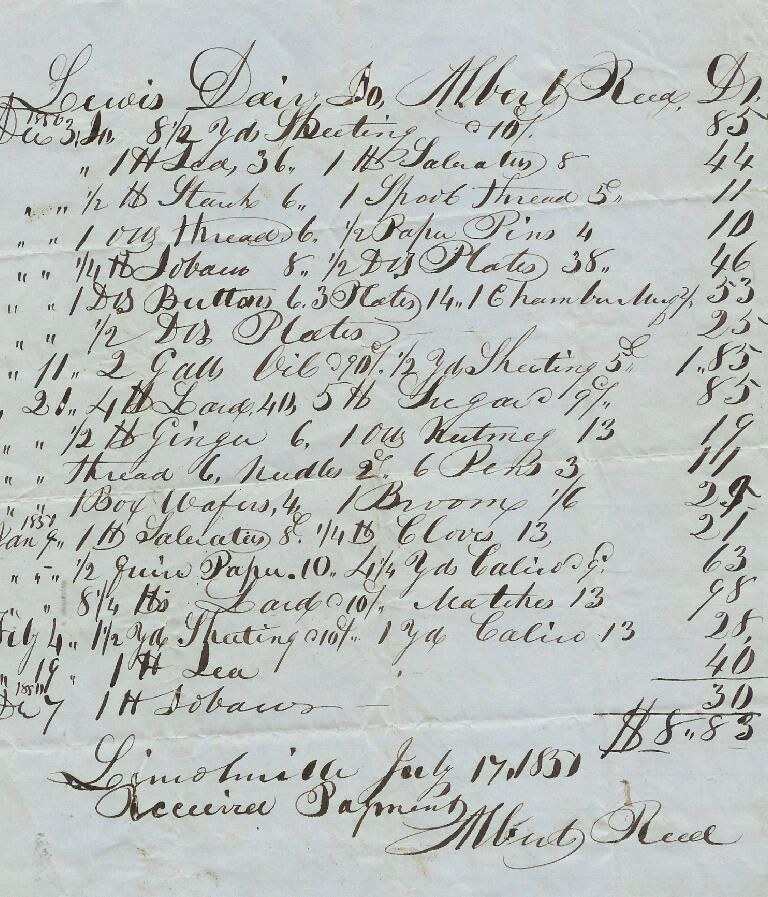 Lewis Dair To, Albert Reed, Dr.
1850
Dec 3, To 8 1/2 Yds Sheeting 10/. 85
" 1 lb Tea, 36" 1 lb Salaratus 8 44
" " 1/2 lb Starch 6" 1 Spool Thread 5c" 11
" " 1 Ots thread 6. 1/2 Paper Pins 4 10
" " 1/4 lb Tobaco 8" 1/2 Dos Plates 38" 46
" " 1 Dos Buttons 6. 3 Plates 14" 1 Chamber 53
" " 1/2 Dos Plates 25
" 11" 2 Galls Oil 90/. 1/2 Yd Sheeting 5c 1.85
" 21. 4 lb Lard, 5 lb Sugar 9c/. 85
" " 1/2 lb Ginger 6, 1 Ots Nutmeg 13 19
" " thread 6, Needles 2c 6 Pens 3 11
" " 1 Box Wafers, 4, 1 Broom 1/6 29
1851
Jan 9" 1 lb Salaratus 8c. 1/4 lb Cloves 13, 21
" " 1/2 Quire Paper. 10. 4 1/4 Yds Calico 63
" " 8 1/4 lbs Lard 10/. Matches 13 98
Feb 4" 1 1/2 Yd Sheeting 10/. 1 Yd Calico 13 28
" 19 " 1 lb Tea 40
1850
Dec 7 1 lb Tobaco 30
$8"83
Lincolnville July 17, 1851
Received Payment
Albert Reed